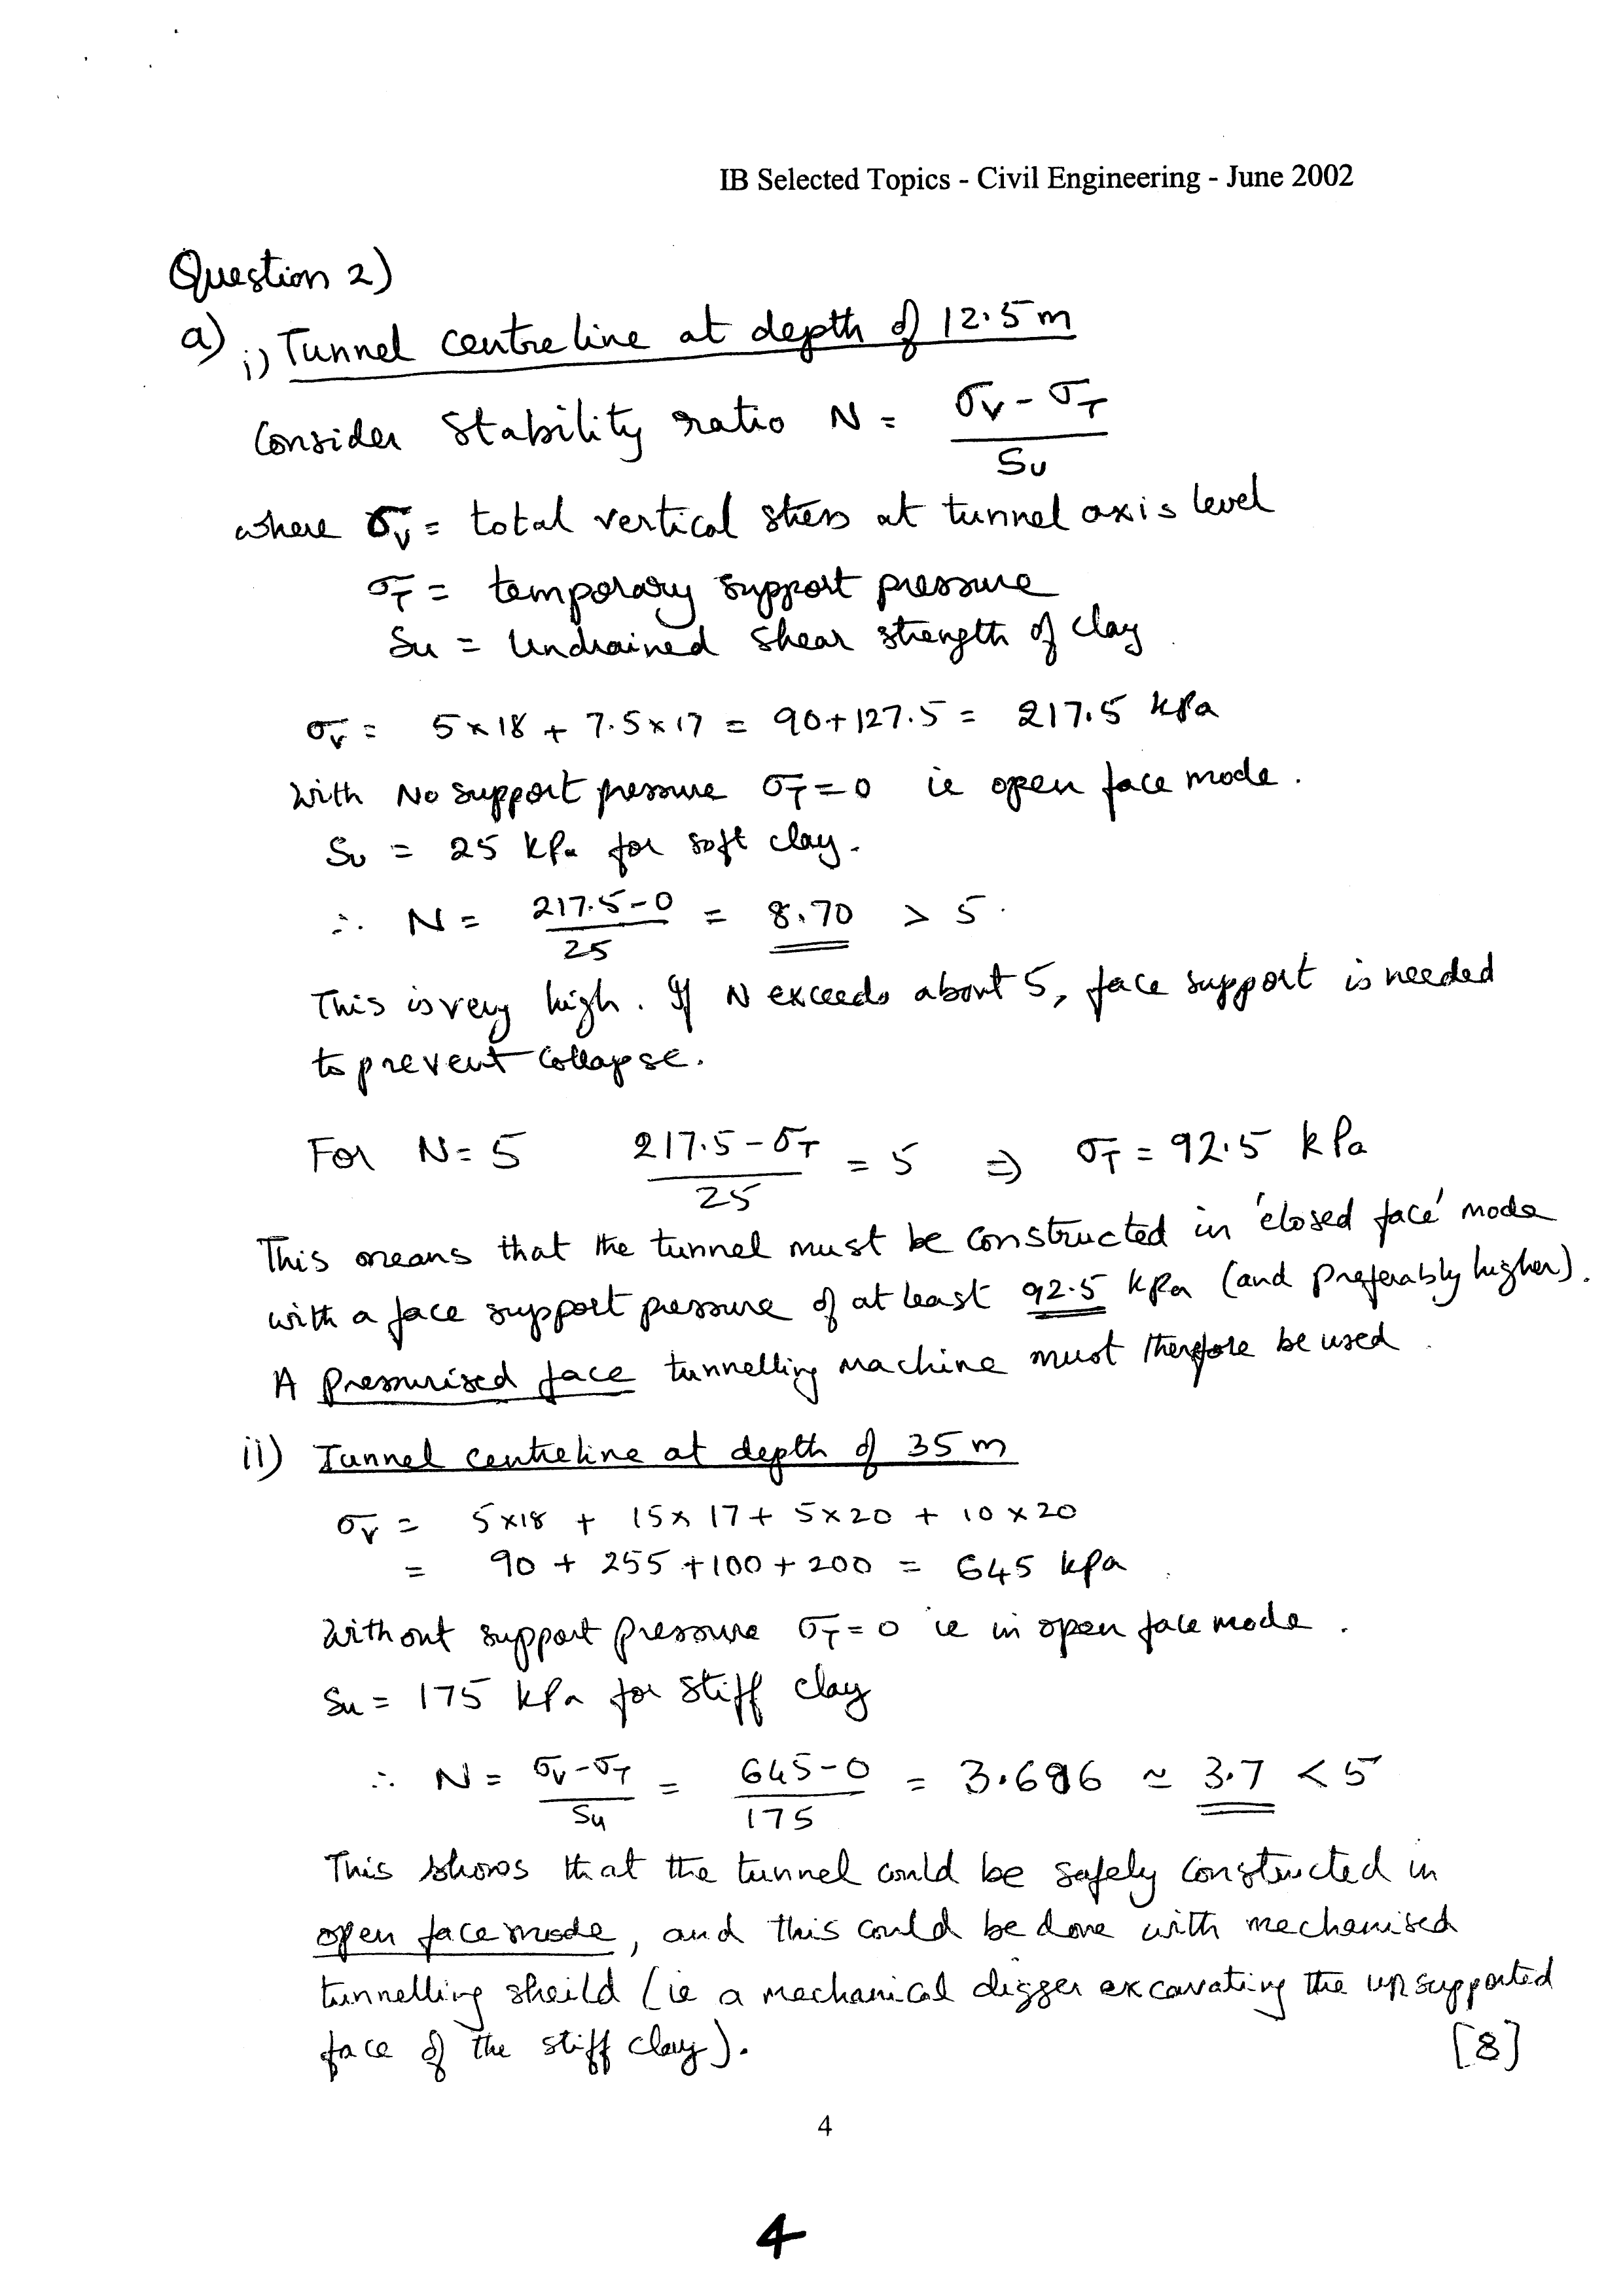 IB Selected Topics - Civil Engineering - June 2002
Question 2)
a) i) Tunnel centre line at depth of 12.5 m
Consider Stability ratio N = (σv - σT) / Su
where σv = total vertical stress at tunnel axis level
σT = temporary support pressure
Su = Undrained shear strength of clay
σv = 5 x 18 + 7.5 x 17 = 90 + 127.5 = 217.5 kPa
With No support pressure σT = 0 ie open face mode.
Su = 25 kPa for soft clay.
∴ N = (217.5 - 0) / 25 = 8.70 > 5.
This is very high. If N exceeds about 5, face support is needed
to prevent collapse.
For N = 5 (217.5 - σT) / 25 = 5 ⇒ σT = 92.5 kPa
This means that the tunnel must be constructed in 'closed face' mode
with a face support pressure of at least 92.5 kPa (and preferably higher).
A pressurised face tunnelling machine must therefore be used.
ii) Tunnel centreline at depth of 35 m
σv = 5x18 + 15 x 17 + 5x20 + 10 x 20
= 90 + 255 + 100 + 200 = 645 kPa.
Without support pressure σT = 0 ie in open face mode.
Su = 175 kPa for stiff clay
∴ N = (σv - σT) / Su = (645 - 0) / 175 = 3.686 ≃ 3.7 < 5
This shows that the tunnel could be safely constructed in
open face mode, and this could be done with mechanised
tunnelling sheild (ie a mechanical digger excavating the unsupported
face of the stiff clay). [8]
4
4